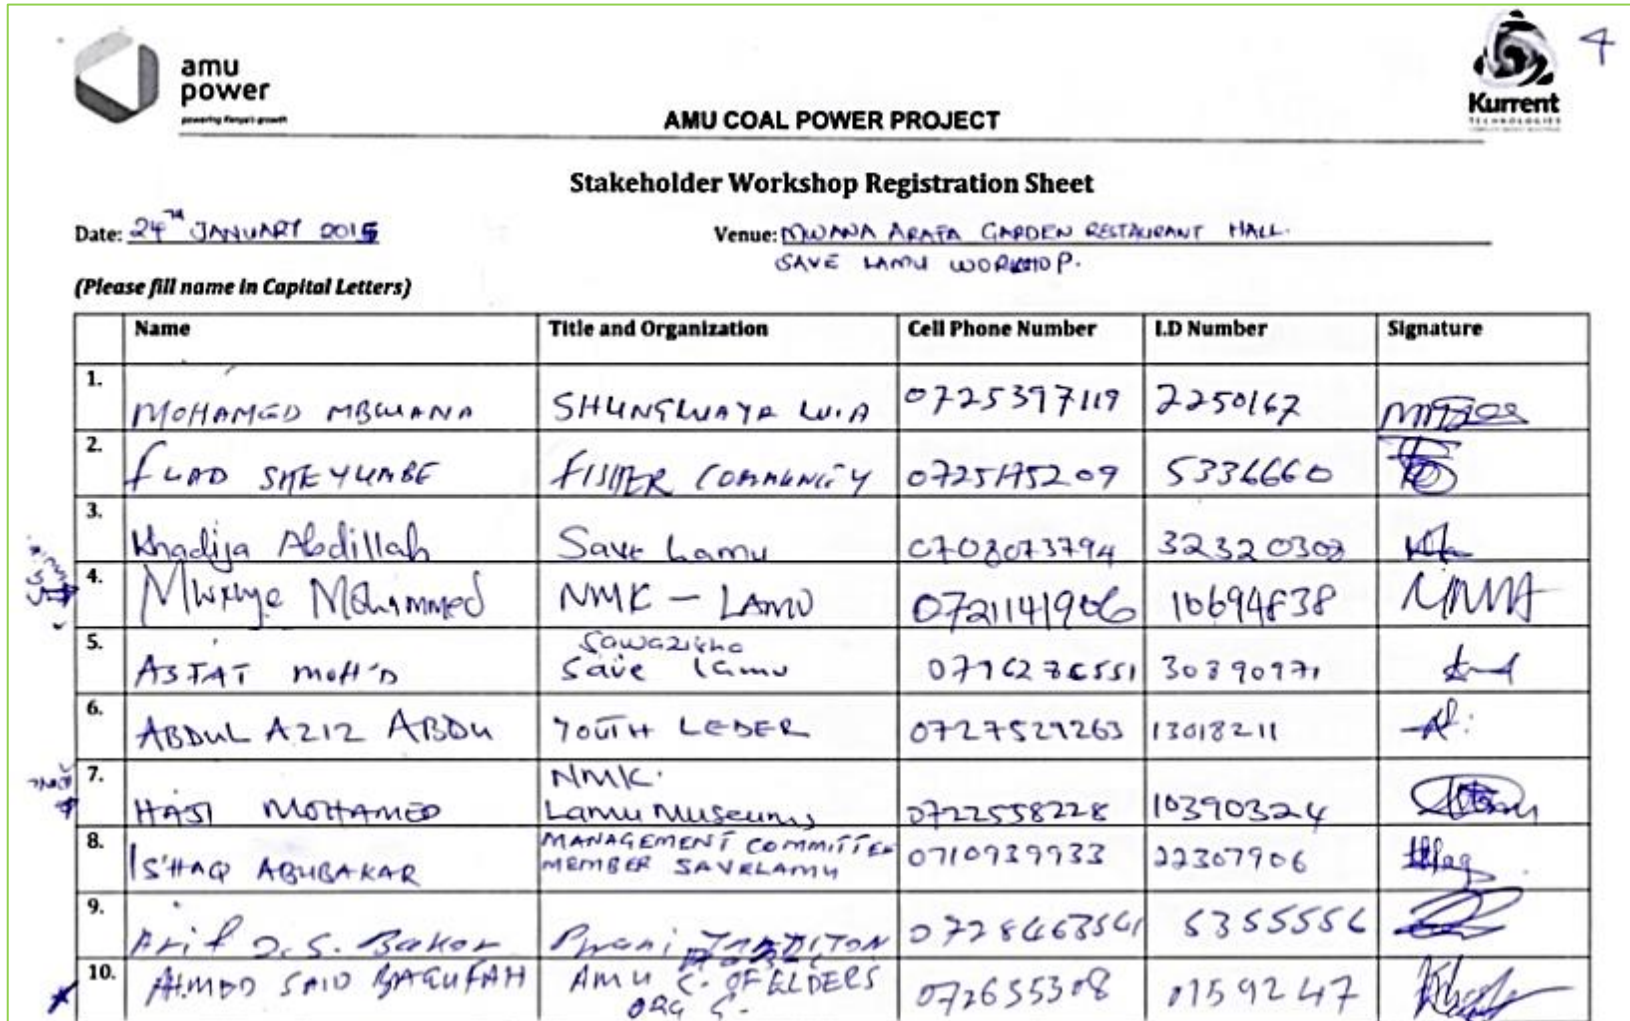 4
amu
power
powering Kenya's growth
Kurrent
TECHNOLOGIES
AMU COAL POWER PROJECT
Stakeholder Workshop Registration Sheet
Date: 24TH JANUARY 2015
Venue: MWANA ARAFA GARDEN RESTAURANT HALL.
SAVE LAMU WORKSHOP.
(Please fill name in Capital Letters)
Name Title and Organization Cell Phone Number I.D Number Signature
1. MOHAMED MBWANA SHUNGWAYA W.A 0725397119 2250167
2. FUAD SHEYUMBE FISHER COMMUNITY 0725175209 5336660
3. Khadija Abdillah Save Lamu 0708073794 32320308
4. Mohammed NMK - LAMU 0721141906 10694838
5. MOH'D Sawazisha
Save lamu 30890971
6. ABDUL AZIZ ABDU YOUTH LEDER 0727529263 13018211
7. HAJI MOHAMED NMK.
Lamu Museums 0722558228 10390324
8. IS'HAQ ABUBAKAR MANAGEMENT COMMITTEE
MEMBER SAVELAMU 0710939933 22307906
9. Arif S. Bakor Pwani 0728463541 5355556
10. AHMED SAID BAGUFAH AMU C. OF ELDERS
ORG 072655308 0159247